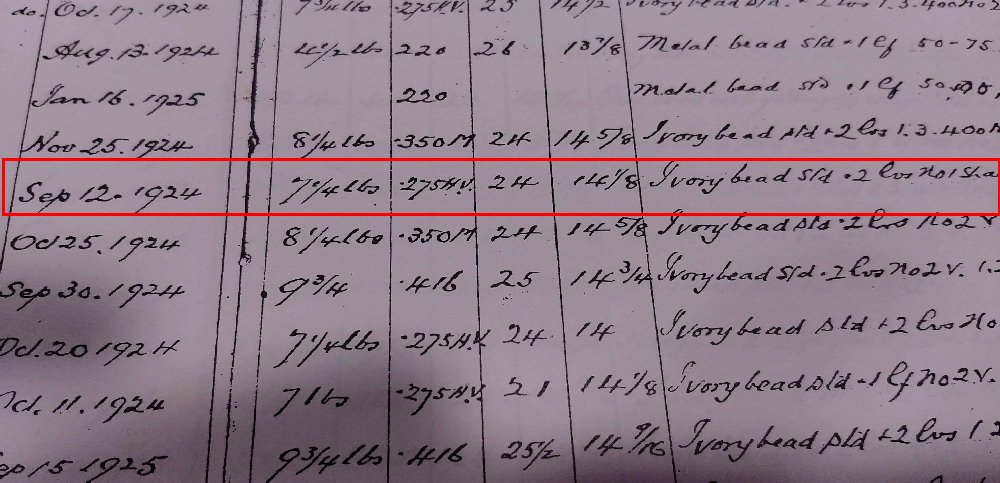 do. Oct. 17. 1924 7 3/4 lbs .275 H.V. 25 14 1/2 Ivory bead Std + 2 lvs 1.3.400
Aug. 13. 1924 4 1/2 lbs 220 26 13 7/8 Metal bead Std + 1 lf 50-75
Jan 16. 1925 220 Metal bead Std + 1 lf 50
Nov 25. 1924 8 1/4 lbs .350 M 24 14 5/8 Ivory bead Std + 2 lvs 1.3.400
Sep 12. 1924 7 1/4 lbs .275 H.V. 24 14 1/8 Ivory bead Std + 2 lvs No 1 Sha
Oct 25. 1924 8 1/4 lbs .350 M 24 14 5/8 Ivory bead Std + 2 lvs No 2 V
Sep 30. 1924 9 3/4 .416 25 14 3/4 Ivory bead Std + 2 lvs No 2 V. 1.2
Oct. 20 1924 7 1/4 lbs .275 H.V. 24 14 Ivory bead Std + 2 lvs No
Oct. 11. 1924 7 lbs .275 H.V. 21 14 1/8 Ivory bead Std + 1 lf No 2 V.
Sep 15 1925 9 3/4 lbs .416 25 1/2 14 9/16 Ivory bead Std + 2 lvs 1.2